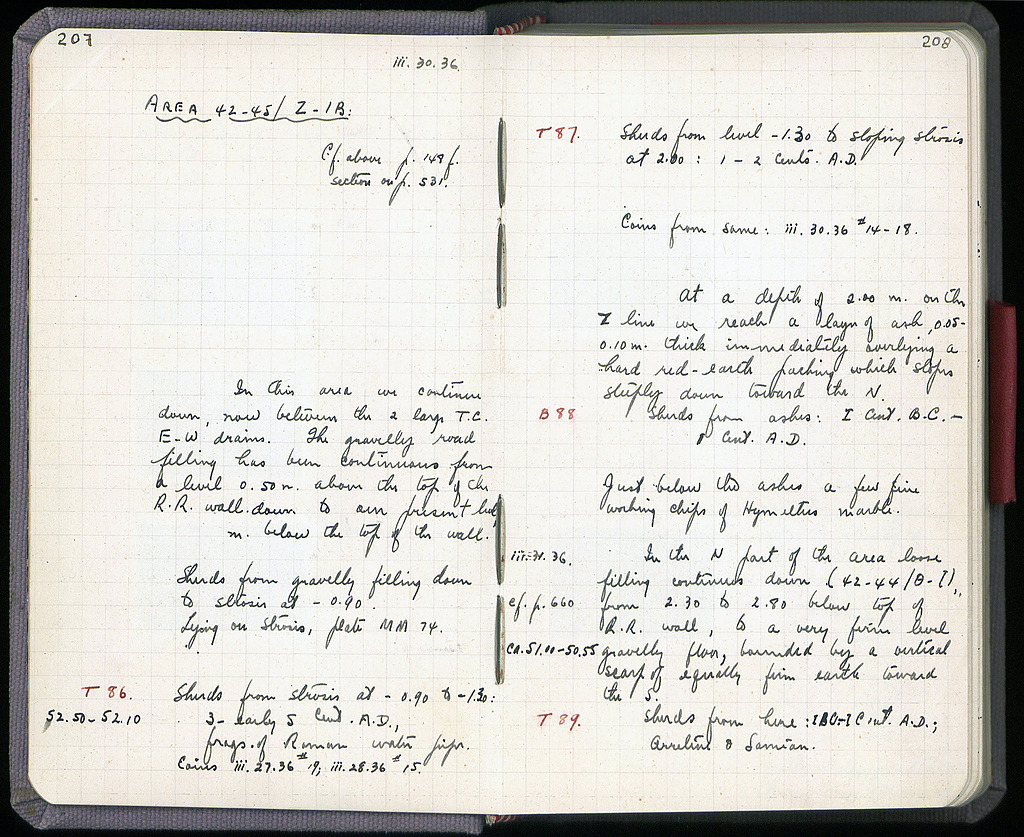 207
iii. 30. 36
AREA 42-45/Z-IB:
Cf. above p. 149 f.
section on p. 531.
In this area we continue
down, now between the 2 large T.C.
E-W drains. The gravelly road
filling has been continuous from
a level 0.50 m. above the top of the
R.R. wall down to our present level,
m. below the top of the wall.
Sherds from gravelly filling down
to strosis at - 0.90.
Lying on strosis, plate MM 74.
T 86. Sherds from strosis at - 0.90 to -1.30:
52.50-52.10 3-early 5 Cent. A.D.,
frags. of Roman water pipe.
Coins iii.27.36 #19; iii.28.36 #15.
208
T 87. Sherds from level -1.30 to sloping strosis
at 2.00 : 1-2 Cents. A.D.
Coins from same: iii.30.36 #14-18.
At a depth of 2.00 m. on the
Z line we reach a layer of ash, 0.05-
0.10 m. thick immediately overlying a
hard red-earth packing which slopes
steeply down toward the N.
B 88 Sherds from ashes: I Cent. B.C. -
Cent. A.D.
Just below the ashes a few fine
working chips of Hymettus marble.
iii.31.36. In the N part of the area loose
filling continues down (42-44/Θ-I),
cf. p. 660 from 2.30 to 2.80 below top of
R.R. wall, to a very firm level
ca. 51.00-50.55 gravelly floor, bounded by a vertical
scarp of equally firm earth toward
the S.
T 89. Sherds from here: I BC-I Cent. A.D.;
Arretine & Samian.